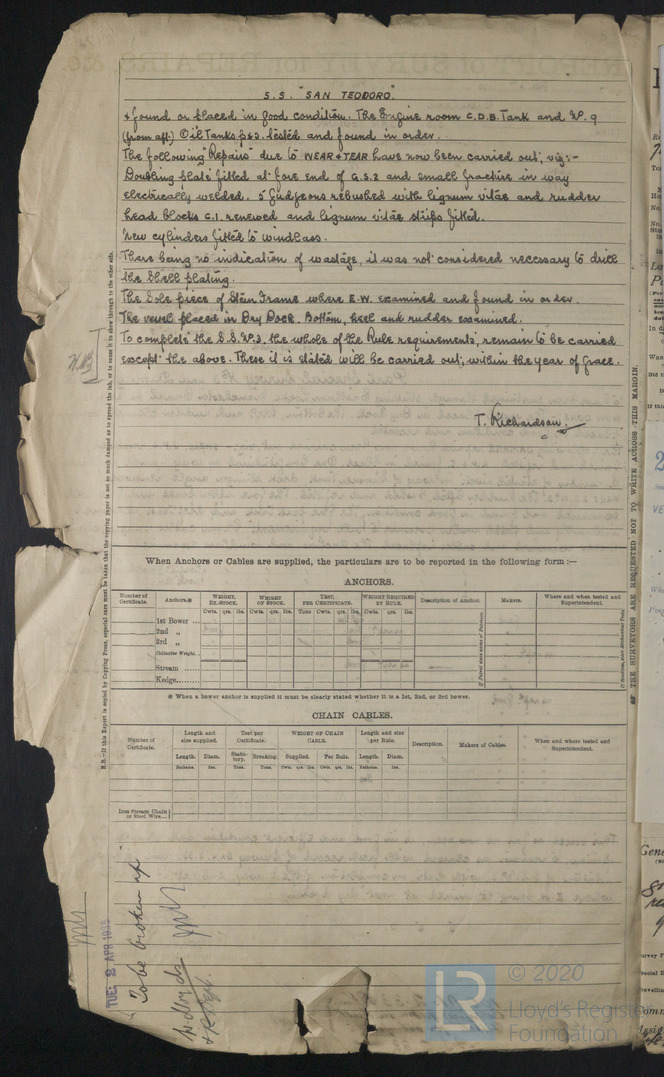 S.S. "SAN TEODORO".
& found or placed in good condition. The Engine room C.D.B. Tank and No. 9
(from aft) Oil Tanks p&s. tested and found in order.
The following "Repairs" due to WEAR & TEAR have now been carried out, viz:-
Doubling plate fitted at fore end of G.S.2 and small fracture in way
electrically welded. 5 Gudgeons rebushed with lignum vitae and rudder
head blocks C.I. renewed and lignum vitae strips fitted.
New cylinders fitted to windlass.
There being no indication of wastage, it was not considered necessary to drill
the Shell plating.
The Sole piece of Stern Frame where E.W. examined and found in order.
The vessel placed in Dry Dock. Bottom, keel and rudder examined.
To complete the S.S. No.3, the whole of the Rule requirements, remain to be carried
except the above. These it is stated will be carried out, within the year of Grace.
T. Richardson.
When Anchors or Cables are supplied, the particulars are to be reported in the following form :—
ANCHORS.
Number of Certificate. Anchors.※ WEIGHT, EX. STOCK. WEIGHT OF STOCK. TEST, PER CERTIFICATE. WEIGHT REQUIRED BY RULE. Description of Anchor. Makers. Where and when tested and Superintendent.
Cwts. qrs. lbs. Cwts. qrs. lbs. Tons Cwts. qrs. lbs. Cwts. qrs. lbs.
1st Bower ...
2nd „
3rd „
Collective Weight.
Stream ......
Kedge........
If Patent state name of Patentee.
※ When a bower anchor is supplied it must be clearly stated whether it is a 1st, 2nd, or 3rd bower.
CHAIN CABLES.
Number of Certificate. Length and size supplied. Test per Certificate. WEIGHT OF CHAIN CABLE. Length and size per Rule. Description. Makers of Cables. When and where tested and Superintendent.
Length. Diam. Statutory. Breaking. Supplied. Per Rule. Length. Diam.
Fathoms. Ins. Tons. Tons. Cwts. qrs. lbs. Cwts. qrs. lbs. Fathoms. Ins.
Iron Stream Chain or Steel Wire...
N.B.—If this Report is copied by Copying Press, especial care must be taken that the copying paper is not so much damped as to spread the ink, or to cause it to show through to the other side.
THE SURVEYORS ARE REQUESTED NOT TO WRITE ACROSS THIS MARGIN.
TUE. 2 APR 1935
To be broken up
LR
© 2020
Lloyd's Register
Foundation